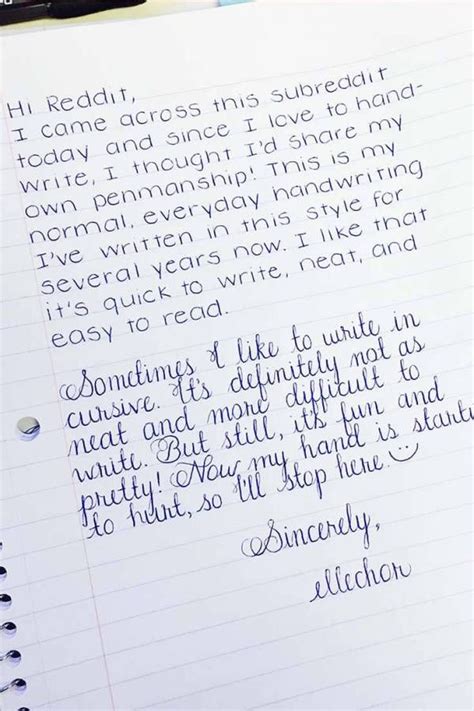 Hi Reddit,
I came across this subreddit
today and since I love to hand-
write, I thought I'd share my
own penmanship! This is my
normal, everyday handwriting
I've written in this style for
several years now. I like that
it's quick to write, neat, and
easy to read.
Sometimes I like to write in
cursive. It's definitely not as
neat and more difficult to
write. But still, it's fun and
pretty! Now my hand is starti
to hurt, so I'll stop here.
Sincerely,
ellechor